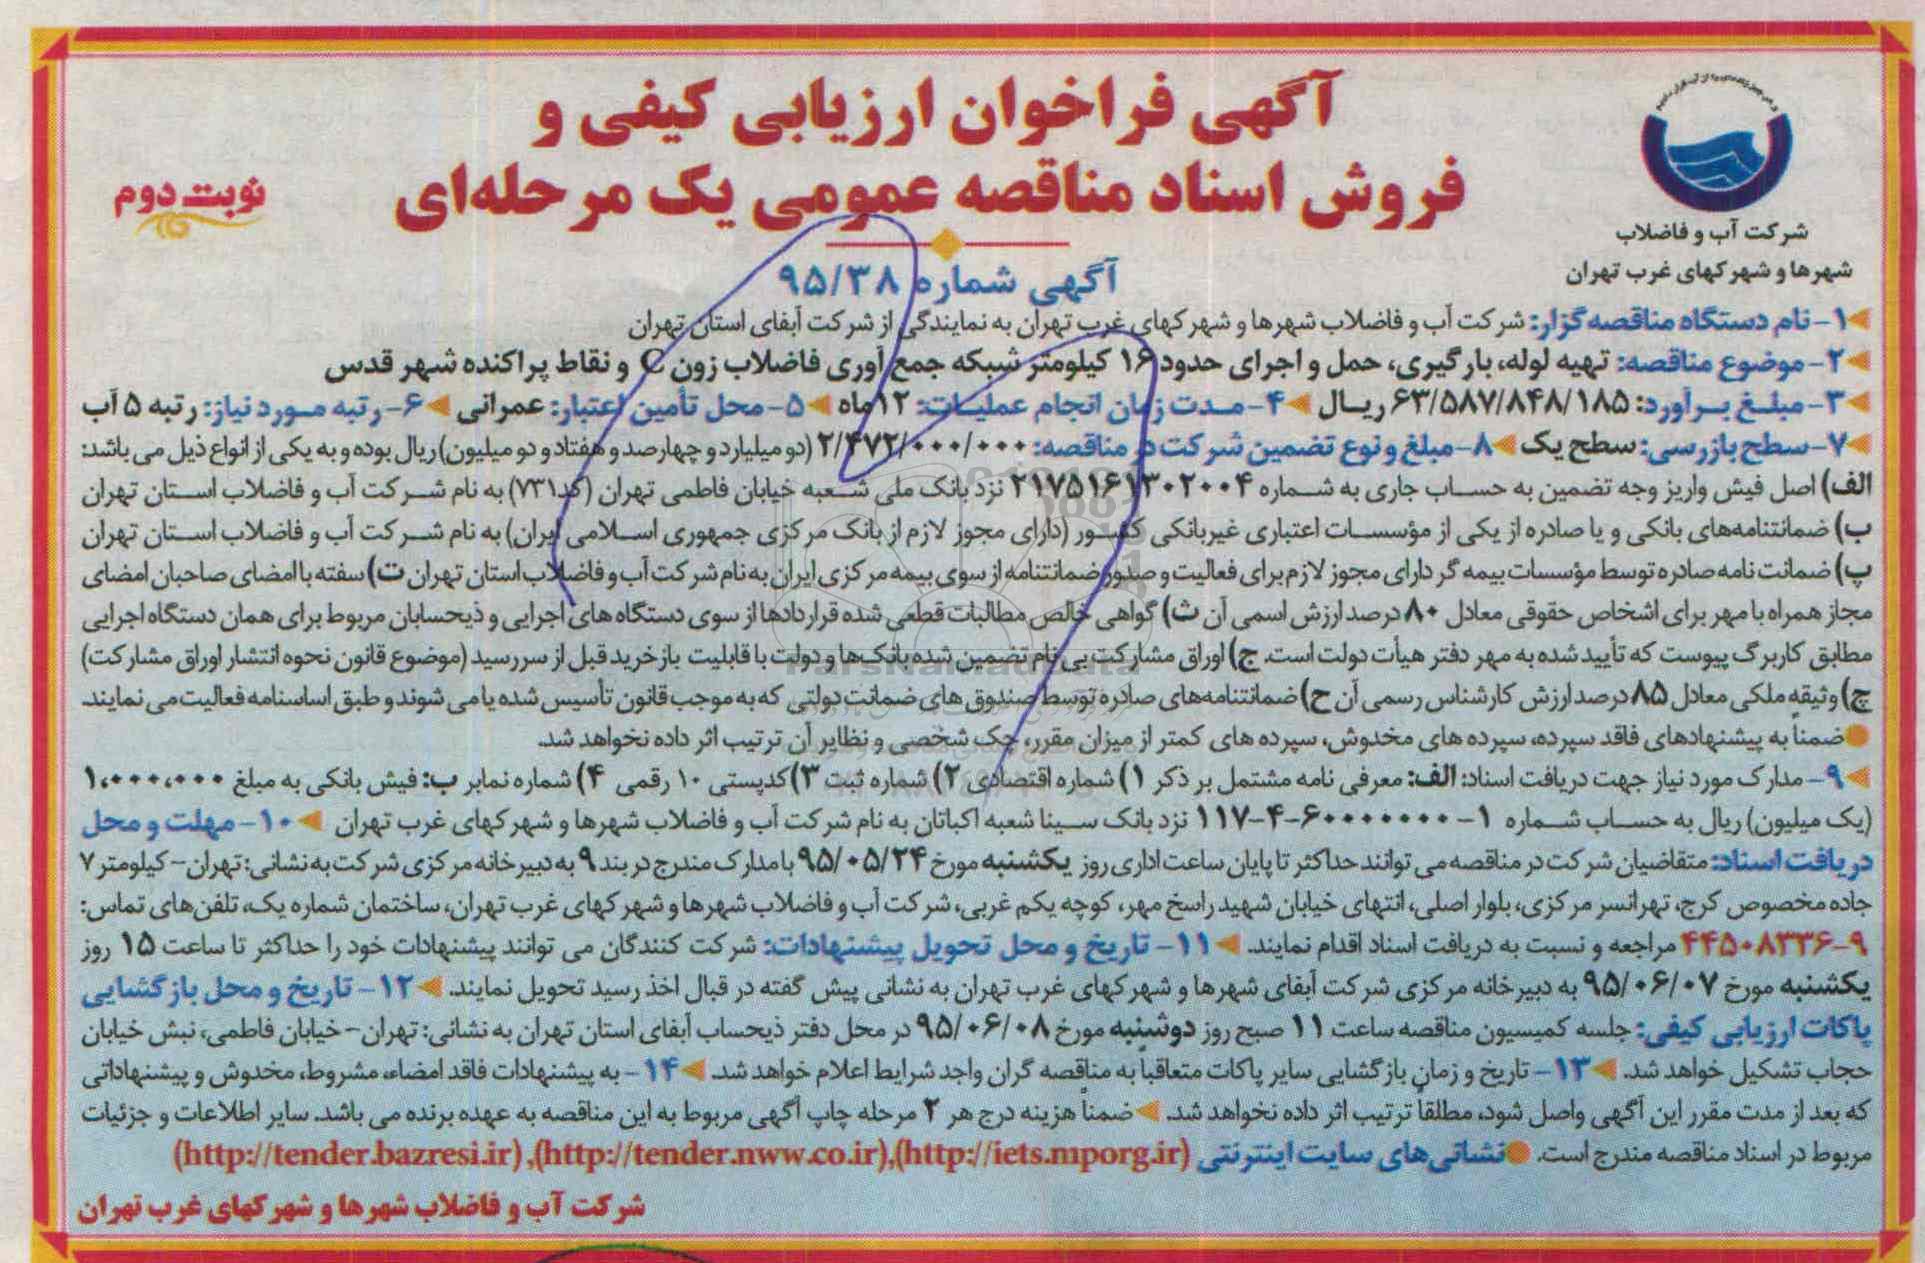 آگهی فراخوان ارزیابی کیفی و
فروش اسناد مناقصه عمومی یک مرحله‌ای
نوبت دوم
شرکت آب و فاضلاب
شهرها و شهرکهای غرب تهران
آگهی شماره ۹۵/۳۸
۱- نام دستگاه مناقصه گزار: شرکت آب و فاضلاب شهرها و شهرکهای غرب تهران به نمایندگی از شرکت آبفای استان تهران
۲- موضوع مناقصه: تهیه لوله، بارگیری، حمل و اجرای حدود ۱۶ کیلومتر شبکه جمع آوری فاضلاب زون C و نقاط پراکنده شهر قدس
۳- مبلغ برآورد: ۶۳/۵۸۷/۸۴۸/۱۸۵ ریال ۴- مدت زمان انجام عملیات: ۱۲ماه ۵- محل تأمین اعتبار: عمرانی ۶- رتبه مورد نیاز: رتبه ۵ آب
۷- سطح بازرسی: سطح یک ۸- مبلغ و نوع تضمین شرکت در مناقصه: ۲/۴۷۲/۰۰۰/۰۰۰ (دو میلیارد و چهارصد و هفتاد و دو میلیون) ریال بوده و به یکی از انواع ذیل می باشد:
الف) اصل فیش واریز وجه تضمین به حساب جاری به شماره ۲۱۷۵۱۶۱۳۰۲۰۰۴ نزد بانک ملی شعبه خیابان فاطمی تهران (کد۷۳۱) به نام شرکت آب و فاضلاب استان تهران
ب) ضمانتنامه‌های بانکی و یا صادره از یکی از مؤسسات اعتباری غیربانکی کشور (دارای مجوز لازم از بانک مرکزی جمهوری اسلامی ایران) به نام شرکت آب و فاضلاب استان تهران
پ) ضمانت نامه صادره توسط مؤسسات بیمه گر دارای مجوز لازم برای فعالیت و صدور ضمانتنامه از سوی بیمه مرکزی ایران به نام شرکت آب و فاضلاب استان تهران ت) سفته با امضای صاحبان امضای
مجاز همراه با مهر برای اشخاص حقوقی معادل ۸۰ درصد ارزش اسمی آن ث) گواهی خالص مطالبات قطعی شده قراردادها از سوی دستگاه های اجرایی و ذیحسابان مربوط برای همان دستگاه اجرایی
مطابق کاربرگ پیوست که تأیید شده به مهر دفتر هیأت دولت است. ج) اوراق مشارکت بی نام تضمین شده بانک‌ها و دولت با قابلیت بازخرید قبل از سررسید (موضوع قانون نحوه انتشار اوراق مشارکت)
چ) وثیقه ملکی معادل ۸۵ درصد ارزش کارشناس رسمی آن ح) ضمانتنامه‌های صادره توسط صندوق های ضمانت دولتی که به موجب قانون تأسیس شده یا می شوند و طبق اساسنامه فعالیت می نمایند.
ضمناً به پیشنهادهای فاقد سپرده، سپرده های مخدوش، سپرده های کمتر از میزان مقرر، چک شخصی و نظایر آن ترتیب اثر داده نخواهد شد.
۹- مدارک مورد نیاز جهت دریافت اسناد: الف: معرفی نامه مشتمل بر ذکر ۱) شماره اقتصادی ۲) شماره ثبت ۳) کدپستی ۱۰ رقمی ۴) شماره نمابر ب: فیش بانکی به مبلغ ۱،۰۰۰،۰۰۰
(یک میلیون) ریال به حساب شماره ۱-۶۰۰۰۰۰۰۰-۴-۱۱۷ نزد بانک سینا شعبه اکباتان به نام شرکت آب و فاضلاب شهرها و شهرکهای غرب تهران ۱۰- مهلت و محل
دریافت اسناد: متقاضیان شرکت در مناقصه می توانند حداکثر تا پایان ساعت اداری روز یکشنبه مورخ ۹۵/۰۵/۲۴ با مدارک مندرج در بند ۹ به دبیرخانه مرکزی شرکت به نشانی: تهران- کیلومتر ۷
جاده مخصوص کرج، تهرانسر مرکزی، بلوار اصلی، انتهای خیابان شهید راسخ مهر، کوچه یکم غربی، شرکت آب و فاضلاب شهرها و شهرکهای غرب تهران، ساختمان شماره یک، تلفن‌های تماس:
۴۴۵۰۸۳۳۶-۹ مراجعه و نسبت به دریافت اسناد اقدام نمایند. ۱۱- تاریخ و محل تحویل پیشنهادات: شرکت کنندگان می توانند پیشنهادات خود را حداکثر تا ساعت ۱۵ روز
یکشنبه مورخ ۹۵/۰۶/۰۷ به دبیرخانه مرکزی شرکت آبفای شهرها و شهرکهای غرب تهران به نشانی پیش گفته در قبال اخذ رسید تحویل نمایند. ۱۲- تاریخ و محل بازگشایی
پاکات ارزیابی کیفی: جلسه کمیسیون مناقصه ساعت ۱۱ صبح روز دوشنبه مورخ ۹۵/۰۶/۰۸ در محل دفتر ذیحساب آبفای استان تهران به نشانی: تهران- خیابان فاطمی، نبش خیابان
حجاب تشکیل خواهد شد. ۱۳- تاریخ و زمان بازگشایی سایر پاکات متعاقباً به مناقصه گران واجد شرایط اعلام خواهد شد. ۱۴- به پیشنهادات فاقد امضاء، مشروط، مخدوش و پیشنهاداتی
که بعد از مدت مقرر این آگهی واصل شود، مطلقاً ترتیب اثر داده نخواهد شد. ضمناً هزینه درج هر ۲ مرحله چاپ آگهی مربوط به این مناقصه به عهده برنده می باشد. سایر اطلاعات و جزئیات
مربوط در اسناد مناقصه مندرج است. نشانی‌های سایت اینترنتی (http://iets.mporg.ir),(http://tender.nww.co.ir), (http://tender.bazresi.ir)
شرکت آب و فاضلاب شهرها و شهرکهای غرب تهران
ParsNamadData